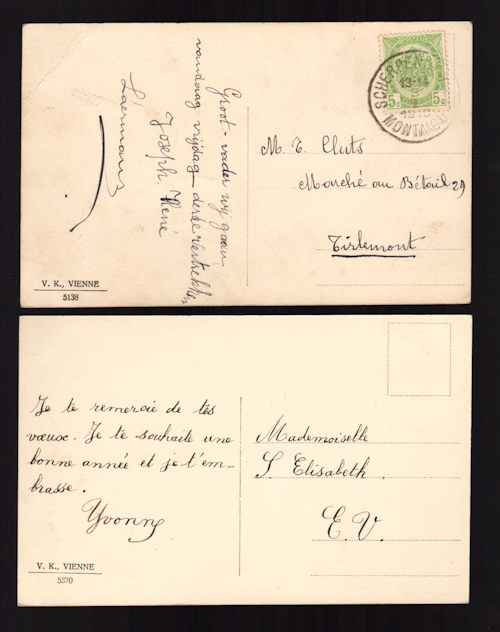 Groot-vader wij gaan
vandaag vrijdag
Joseph. René
Laermans
SCHERPEN
13-14
MONTAIGU
5c 5c
M. T. Cluts
Marché au Bétail 29
Tirlemont
V. K., VIENNE
5138
Je te remercie de tes
vœux. Je te souhaite une
bonne année et je t'em-
brasse.
Yvonne
Mademoiselle
S. Elisabeth.
E. V.
V. K., VIENNE
5370